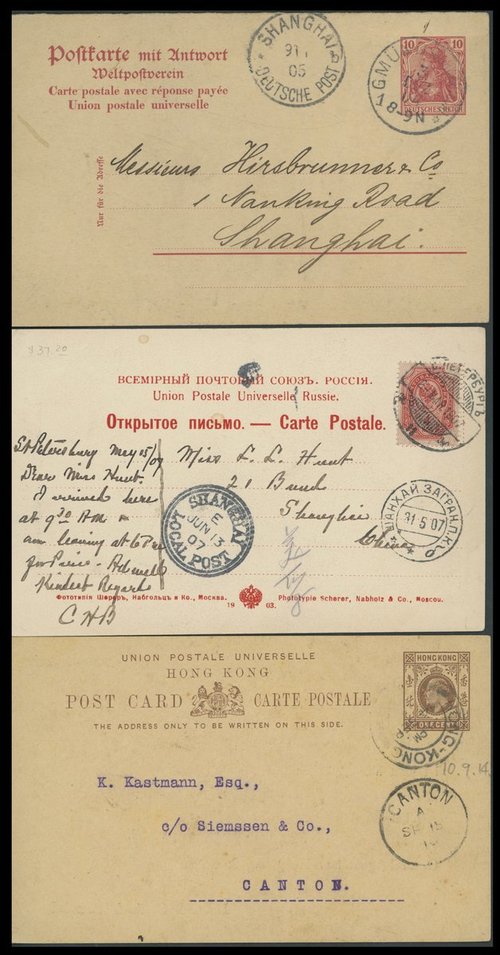 Postkarte mit Antwort
Weltpostverein
Carte postale avec réponse payée
Union postale universelle
SHANGHAI
DEUTSCHE POST
05
10 10
DEUTSCHES REICH
GMÜ
8-9N
Nur für die Adresse
Messieurs Hirsbrunner & Co
1 Nanking Road
Shanghai.
ВСЕМІРНЫЙ ПОЧТОВЫЙ СОЮЗЪ. РОССІЯ.
Union Postale Universelle Russie.
Открытое письмо. — Carte Postale.
С.ПЕТЕРБУРГЪ
St Petersburg May 15/07
Dear Miss Hunt.
I arrived here
at 9.30 AM &
am leaving at 6 PM
for Paris.
Kindest Regards
C H B
Miss L. L. Hunt
21 Bund
Shanghai
China
SHANGHAI
E
JUN 13
07
LOCAL POST
ШАНХАЙ ЗАГРАН.П.К.
31 5 07
Фототипія Шереръ, Набгольцъ и Ко., Москва.
19 03.
Phototypie Scherer, Nabholz & Co., Moscou.
UNION POSTALE UNIVERSELLE
HONG KONG
POST CARD CARTE POSTALE
THE ADDRESS ONLY TO BE WRITTEN ON THIS SIDE.
HONG KONG
ONE CENT
HONG-KONG
10.9.14
K. Kastmann, Esq.,
c/o Siemssen & Co.,
CANTON.
CANTON
A
SP 15